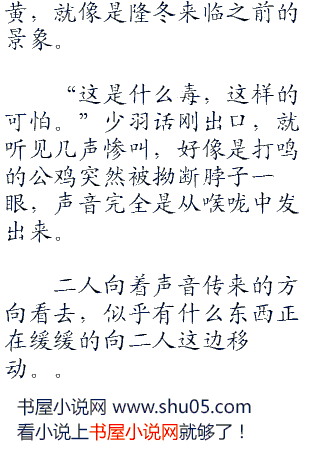 黄，就像是隆冬来临之前的
景象。
“这是什么毒，这样的
可怕。”少羽话刚出口，就
听见几声惨叫，好像是打鸣
的公鸡突然被拗断脖子一
眼，声音完全是从喉咙中发
出来。
二人向着声音传来的方
向看去，似乎有什么东西正
在缓缓的向二人这边移
动。。
书屋小说网 www.shu05.com
看小说上书屋小说网就够了！